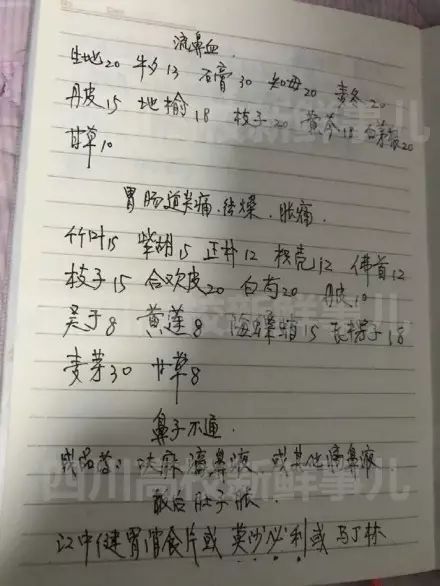 流鼻血
生地20 牛夕13 石膏30 知母20 麦冬20
丹皮15 地榆18 枝子20 黄芩18 白茅根20
甘草10
胃肠道炎痛、结燥、胀痛.
竹叶15 柴胡15 正朴12 枳壳12 佛首12
枝子15 合欢皮20 白芍20 丹皮10
吴于8 黄莲8 海螵蛸15 瓦楞子18
麦芽30 甘草8
鼻子不通.
成品药: 滴鼻液 或其他滴鼻液
饭后肚子胀.
江中健胃消食片或 莫沙必利或 马丁林
四川高校新鲜事儿